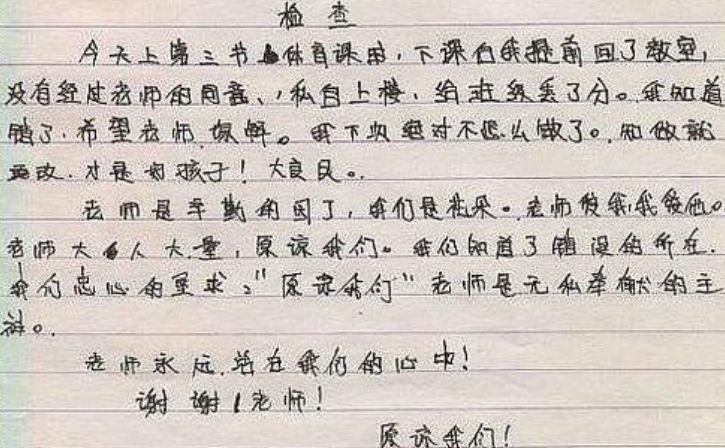 检查
今天上第三节体育课时，下课自我提前回了教室，
没有经过老师的同意、，私自上楼，给班级丢了分。我知道
错了，希望老师，原解。我下次绝对不怎么做了。知做就
要改，才是好孩子！大良民。
老师是辛勤的园丁，我们是花朵。老师爱我我爱他。
老师大人大量，原谅我们。我们知道了错误的所在。
我们忠心的垦求："原谅我们"老师是无私奉献的主
神。
老师永远活在我们的心中！
谢谢！老师！
原谅我们！